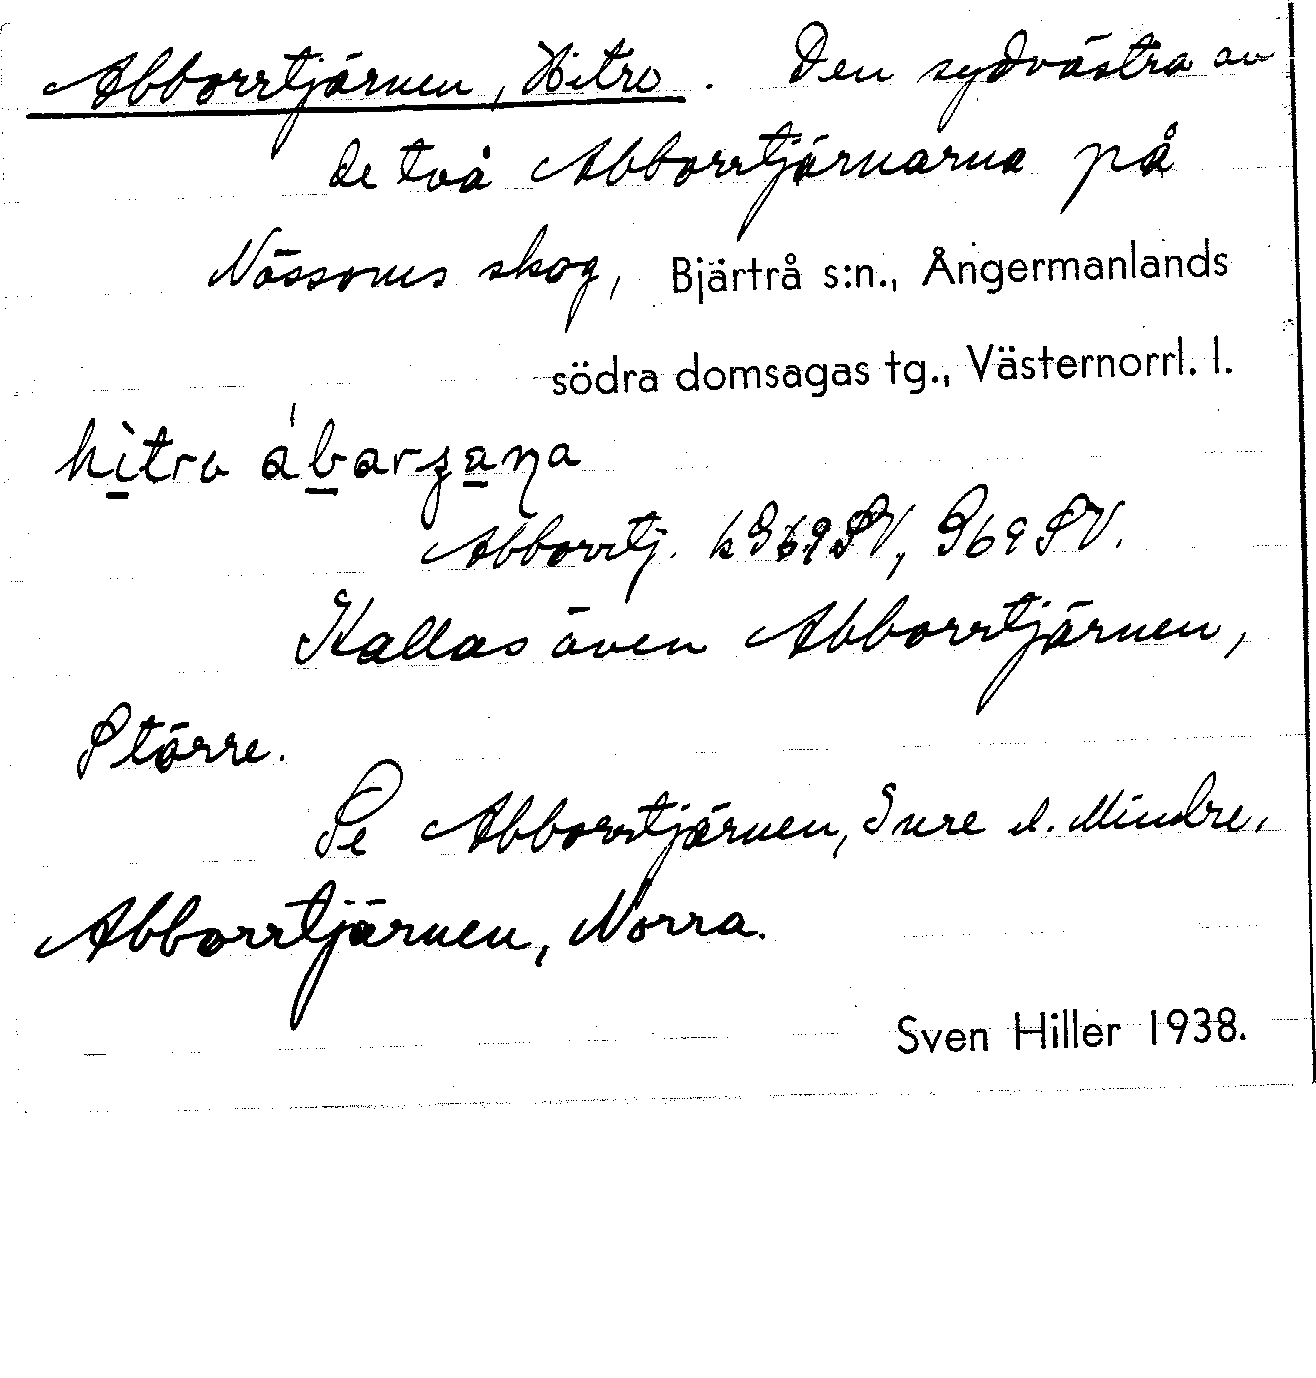 Abborrtjärnen, Hitre. Den sydvästra av
de två Abborrtjärnarna på
Nässoms skog, Bjärtrå s:n., Ångermanlands
södra domsagas tg., Västernorrl. l.
Abborrtj. k 969 SV, 969 SV.
Kallas även Abborrtjärnen,
Större.
Se Abborrtjärnen, Inre l. Mindre,
Abborrtjärnen, Norra.
Sven Hiller 1938.